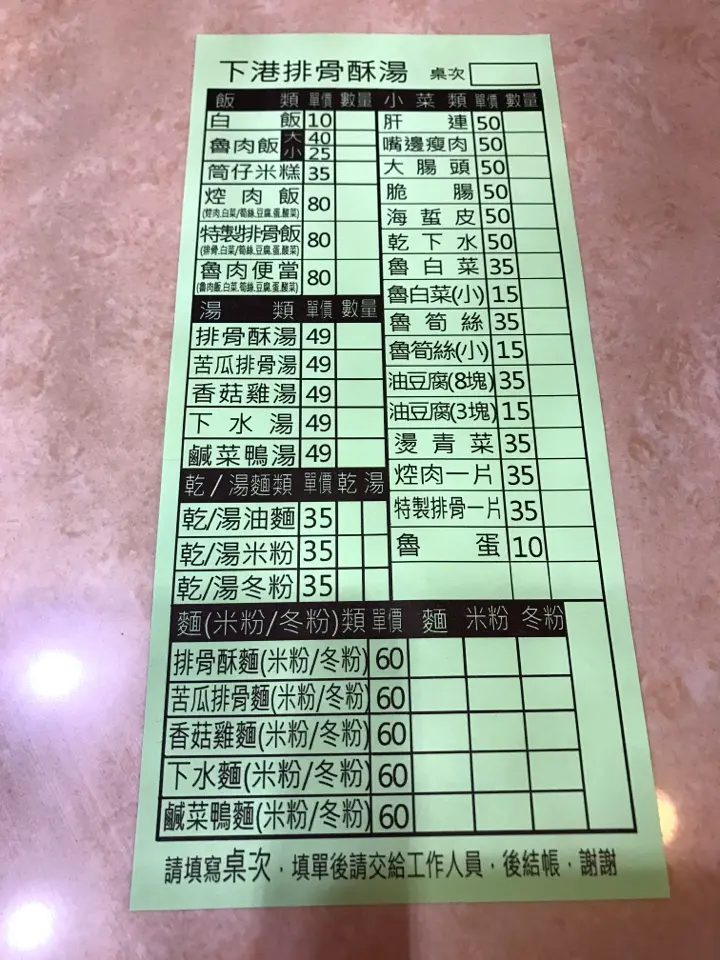 下港排骨酥湯 桌次
飯類 單價 數量
白飯 10
魯肉飯 大 40
小 25
筒仔米糕 35
焢肉飯 80
(焢肉,白菜/筍絲,豆腐,蛋,酸菜)
特製排骨飯 80
(排骨,白菜/筍絲,豆腐,蛋,酸菜)
魯肉便當 80
(魯肉飯,白菜,筍絲,豆腐,蛋,酸菜)
湯類 單價 數量
排骨酥湯 49
苦瓜排骨湯 49
香菇雞湯 49
下水湯 49
鹹菜鴨湯 49
乾/湯麵類 單價 乾 湯
乾/湯油麵 35
乾/湯米粉 35
乾/湯冬粉 35
小菜類 單價 數量
肝連 50
嘴邊瘦肉 50
大腸頭 50
脆腸 50
海蜇皮 50
乾下水 50
魯白菜 35
魯白菜(小) 15
魯筍絲 35
魯筍絲(小) 15
油豆腐(8塊) 35
油豆腐(3塊) 15
燙青菜 35
焢肉一片 35
特製排骨一片 35
魯蛋 10
麵(米粉/冬粉)類 單價 麵 米粉 冬粉
排骨酥麵(米粉/冬粉) 60
苦瓜排骨麵(米粉/冬粉) 60
香菇雞麵(米粉/冬粉) 60
下水麵(米粉/冬粉) 60
鹹菜鴨麵(米粉/冬粉) 60
請填寫桌次，填單後請交給工作人員，後結帳，謝謝